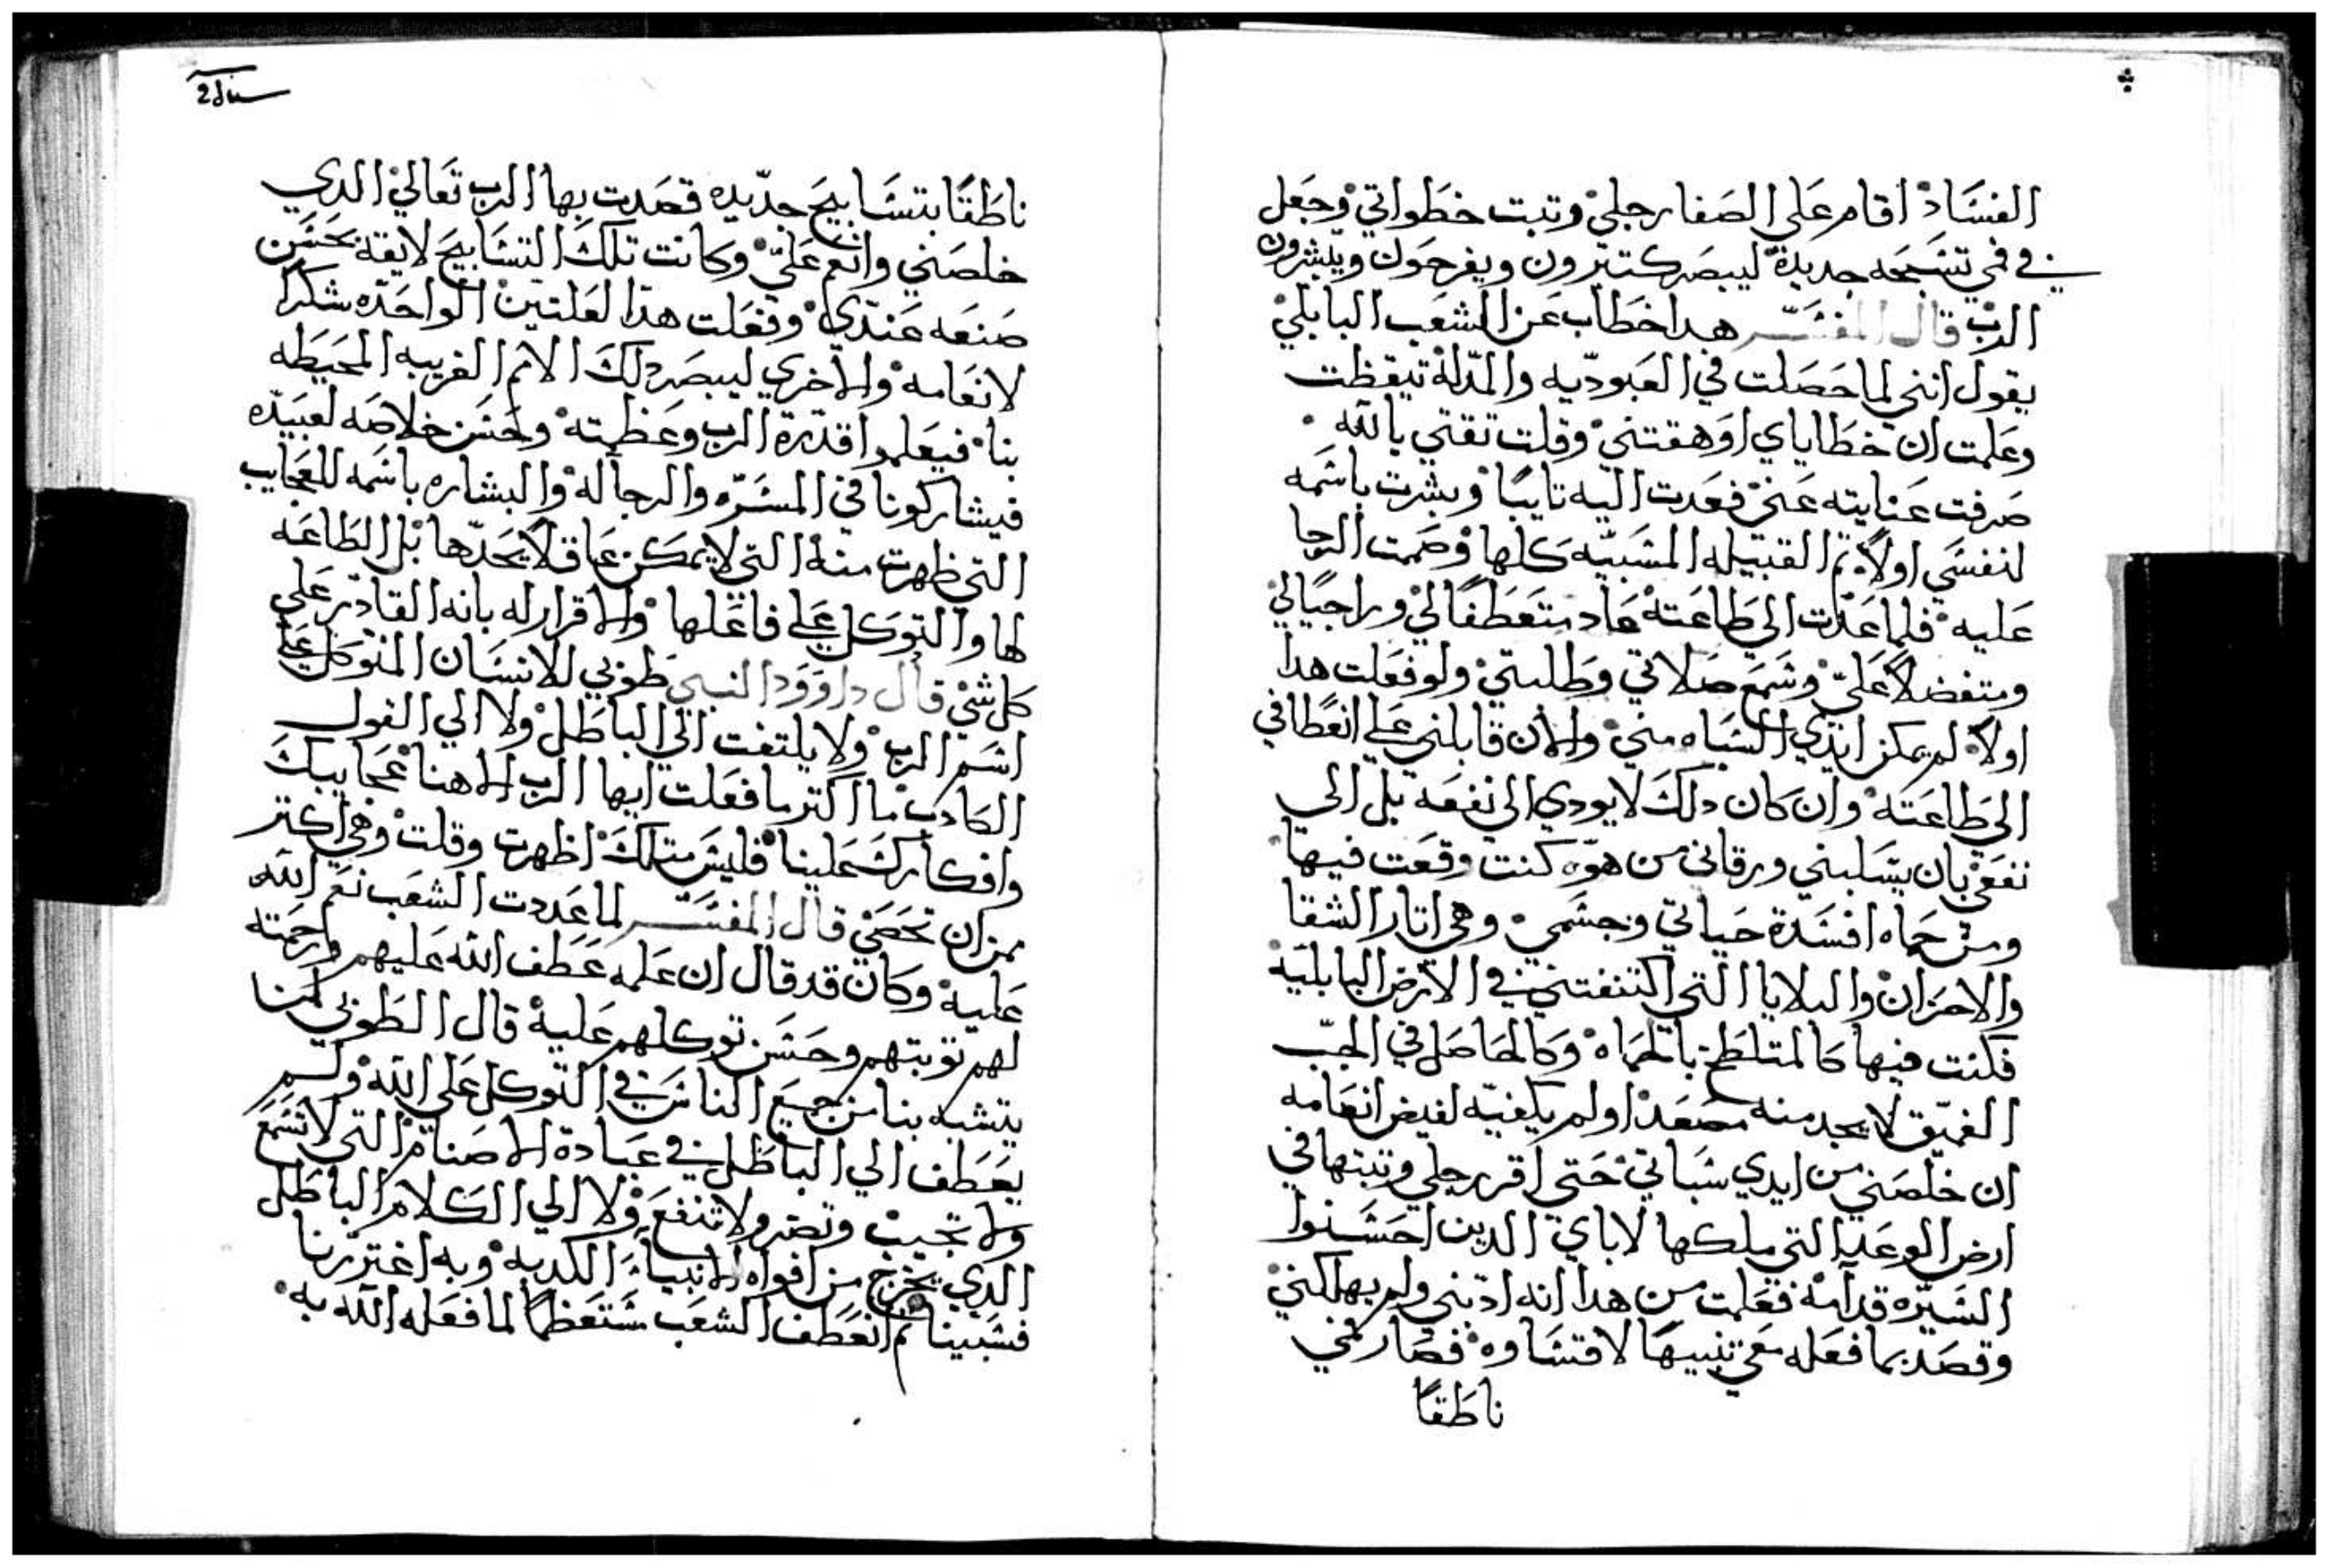 الفسَاد اقام عَلي الصَفا رجلي وتبت خطواتي وجعَل
في فمي تسَبحَه جديدة ليبصَر كتيرون ويفرحَون ويبشرون
الرب قال المفسَّر هدا خطاب عَن الشعَب البابلي
يقول انني لما حَصَلت في العَبوديّه والمدّلة تيقظت
وعَلمت ان خطاياي اوهقتني وقلت تقتي بالله
صَرفت عَنايته عَني فعَدت اليه تايبًا وبشرت باسَمه
لنفسَي اولاً تم القبيله المسَبيّه كلها وضممت الرجا
عَليه فلما عَدت الي طاعَته عاد متعَطفًا لي وراجيًا لي
ومتفضلاً عَليّ وسَمع صَلاتي وطلبتي ولو فعَلت هدا
اولاً لم يمكن ايدي السَباه مني والان قابلني عَلي انعَطافي
الي طاعَته وان كان دلك لا يودي الي نفعَه بل الي
نفعَي بان يسَلبني ورقاني من هوّه كنت وقعَت فيها
ومن حماه افسَدة حَياتي وجسَمي وهي اتار الشقا
والاحزان والبلايا التي اكتنفتني في الارض البابليّه
فكنت فيها كالمتلطخ بالحماه وكالحاصَل في الجبّ
الغميّق لا يجد منه مصَعَدا ولم يكفيّه لفيض انعَامه
ان خلّصَني من ايدي سَباتي حَتي اقر رجلي وتبتها في
ارض الوعَد التي ملكها لاباي الدين احسَنوا
السَيّره قدامه فعَلمت من هدا انه ادّبني ولم يهلكني
وقصَد بما فعَله معَي تنبيهًا لاقتسَاوه فصَار فمي
ناطقًا
سنال2
ناطقًا بتسَابيحَ جديّده فحمَدت بها الرب تعَالي الدي
خلصَني وانعَم عَليّ وكانت تلك التسَابيحَ لايقة بحَسَن
صَنعَه عَندّي وفعَلت هدا لعَلتين الواحَدّه شكرا
لانعَامه والاخري ليبصَر دلك الامم الغريبه المحيَطه
بنا فيعَلموا قدّرة الرب وعَظمته وحَسَن خلاصَه لعَبيدّه
فيشاركونا في المسَرّه والرجا له والبشاره باسَمه للعَجايب
التي ظهرت منه التي لا يمكن عَاقلاً يجَحدّها بل الطاعَه
لها والتوكل عَلي فاعَلها والاقرار له بانه القادّر عَلي
كل شي قال داوود النبي طوبي للانسَان المتوكل عَلي
اسَم الرب ولا يلتفت الي الباطل ولا الي القول
الكادب ما اكتر ما فعَلت ايها الرب الاهنا عَجايبك
وافكارك عَلينا فليسَ متلك اظهرت وقلت وهي اكتر
من ان تحَصَي قال المفسَّر لما عَددت الشعَب نعَم الله
عَليه وكان قد قال ان عَلمه عَطف الله عَليهم ورحَمته
لهم توبتهم وحَسَن توكلهم عَليه قال الطوبي لمن
يتشبه بنا من جميعَ الناسَ في التوكل عَلي الله ولم
يعَطف الي الباطل في عَبادة الاصَنام التي لا تسَمعَ
ولا تجيب وتضر ولا تنفعَ ولا الي الكلام الباطل
الدي يخرج من افواه الانبياء الكدبه وبه اغتررّنا
فسَبينا تم انعَطف الشعَب مسَتعَظمًا لما فعَله الله به